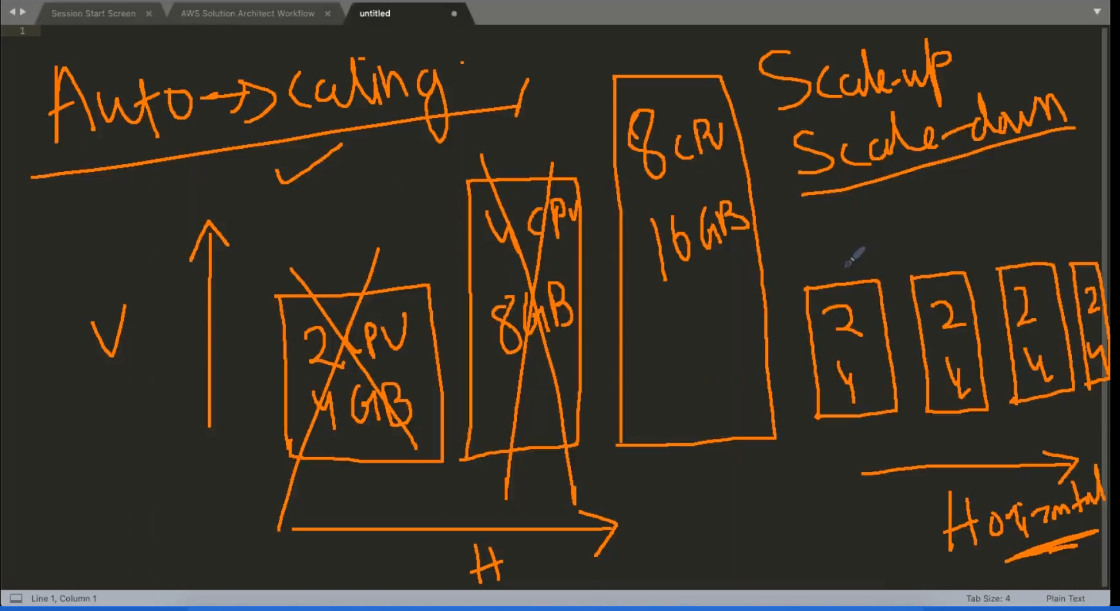 Session Start Screen
AWS Solution Architect Workflow
untitled
1
Auto-Scaling
Scale-up
Scale-down
8 CPU
16 GB
4 CPU
8 GB
2 CPU
4 GB
V
H
2
4
2
4
2
4
2
4
Horizontal
Line 1, Column 1
Tab Size: 4
Plain Text